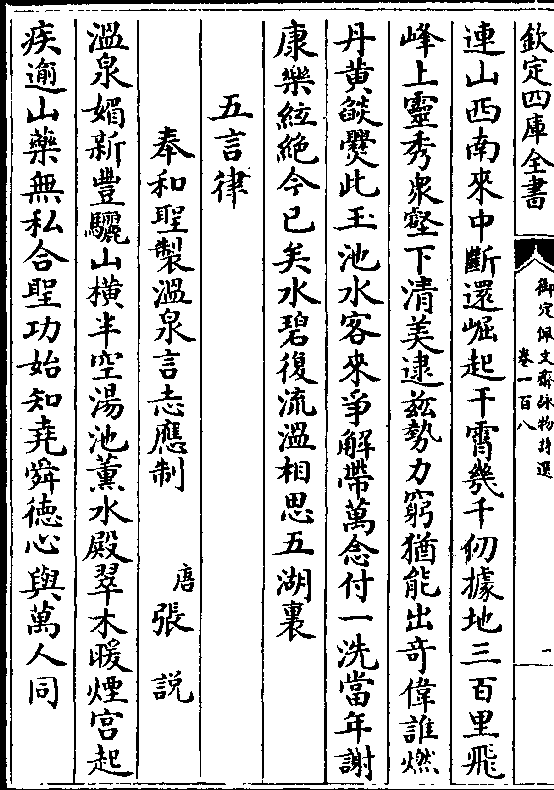 欽定四庫全書
御定佩文齋詠物詩選
卷一百八
一
連山西南來中斷還崛起干霄幾千仞據地三百里飛
峰上靈秀衆壑下清美逮茲勢力窮猶能出奇偉誰燃
丹黄燄爨此玉池水客來爭解帶萬念付一洗當年謝
康樂絃絶今已矣水碧復流温相思五湖裏
五言律
奉和聖製温泉言志應制
唐張説
温泉媚新豐驪山横半空湯池薰水殿翠木暖煙宫起
疾逾山藥無私合聖功始知堯舜徳心與萬人同